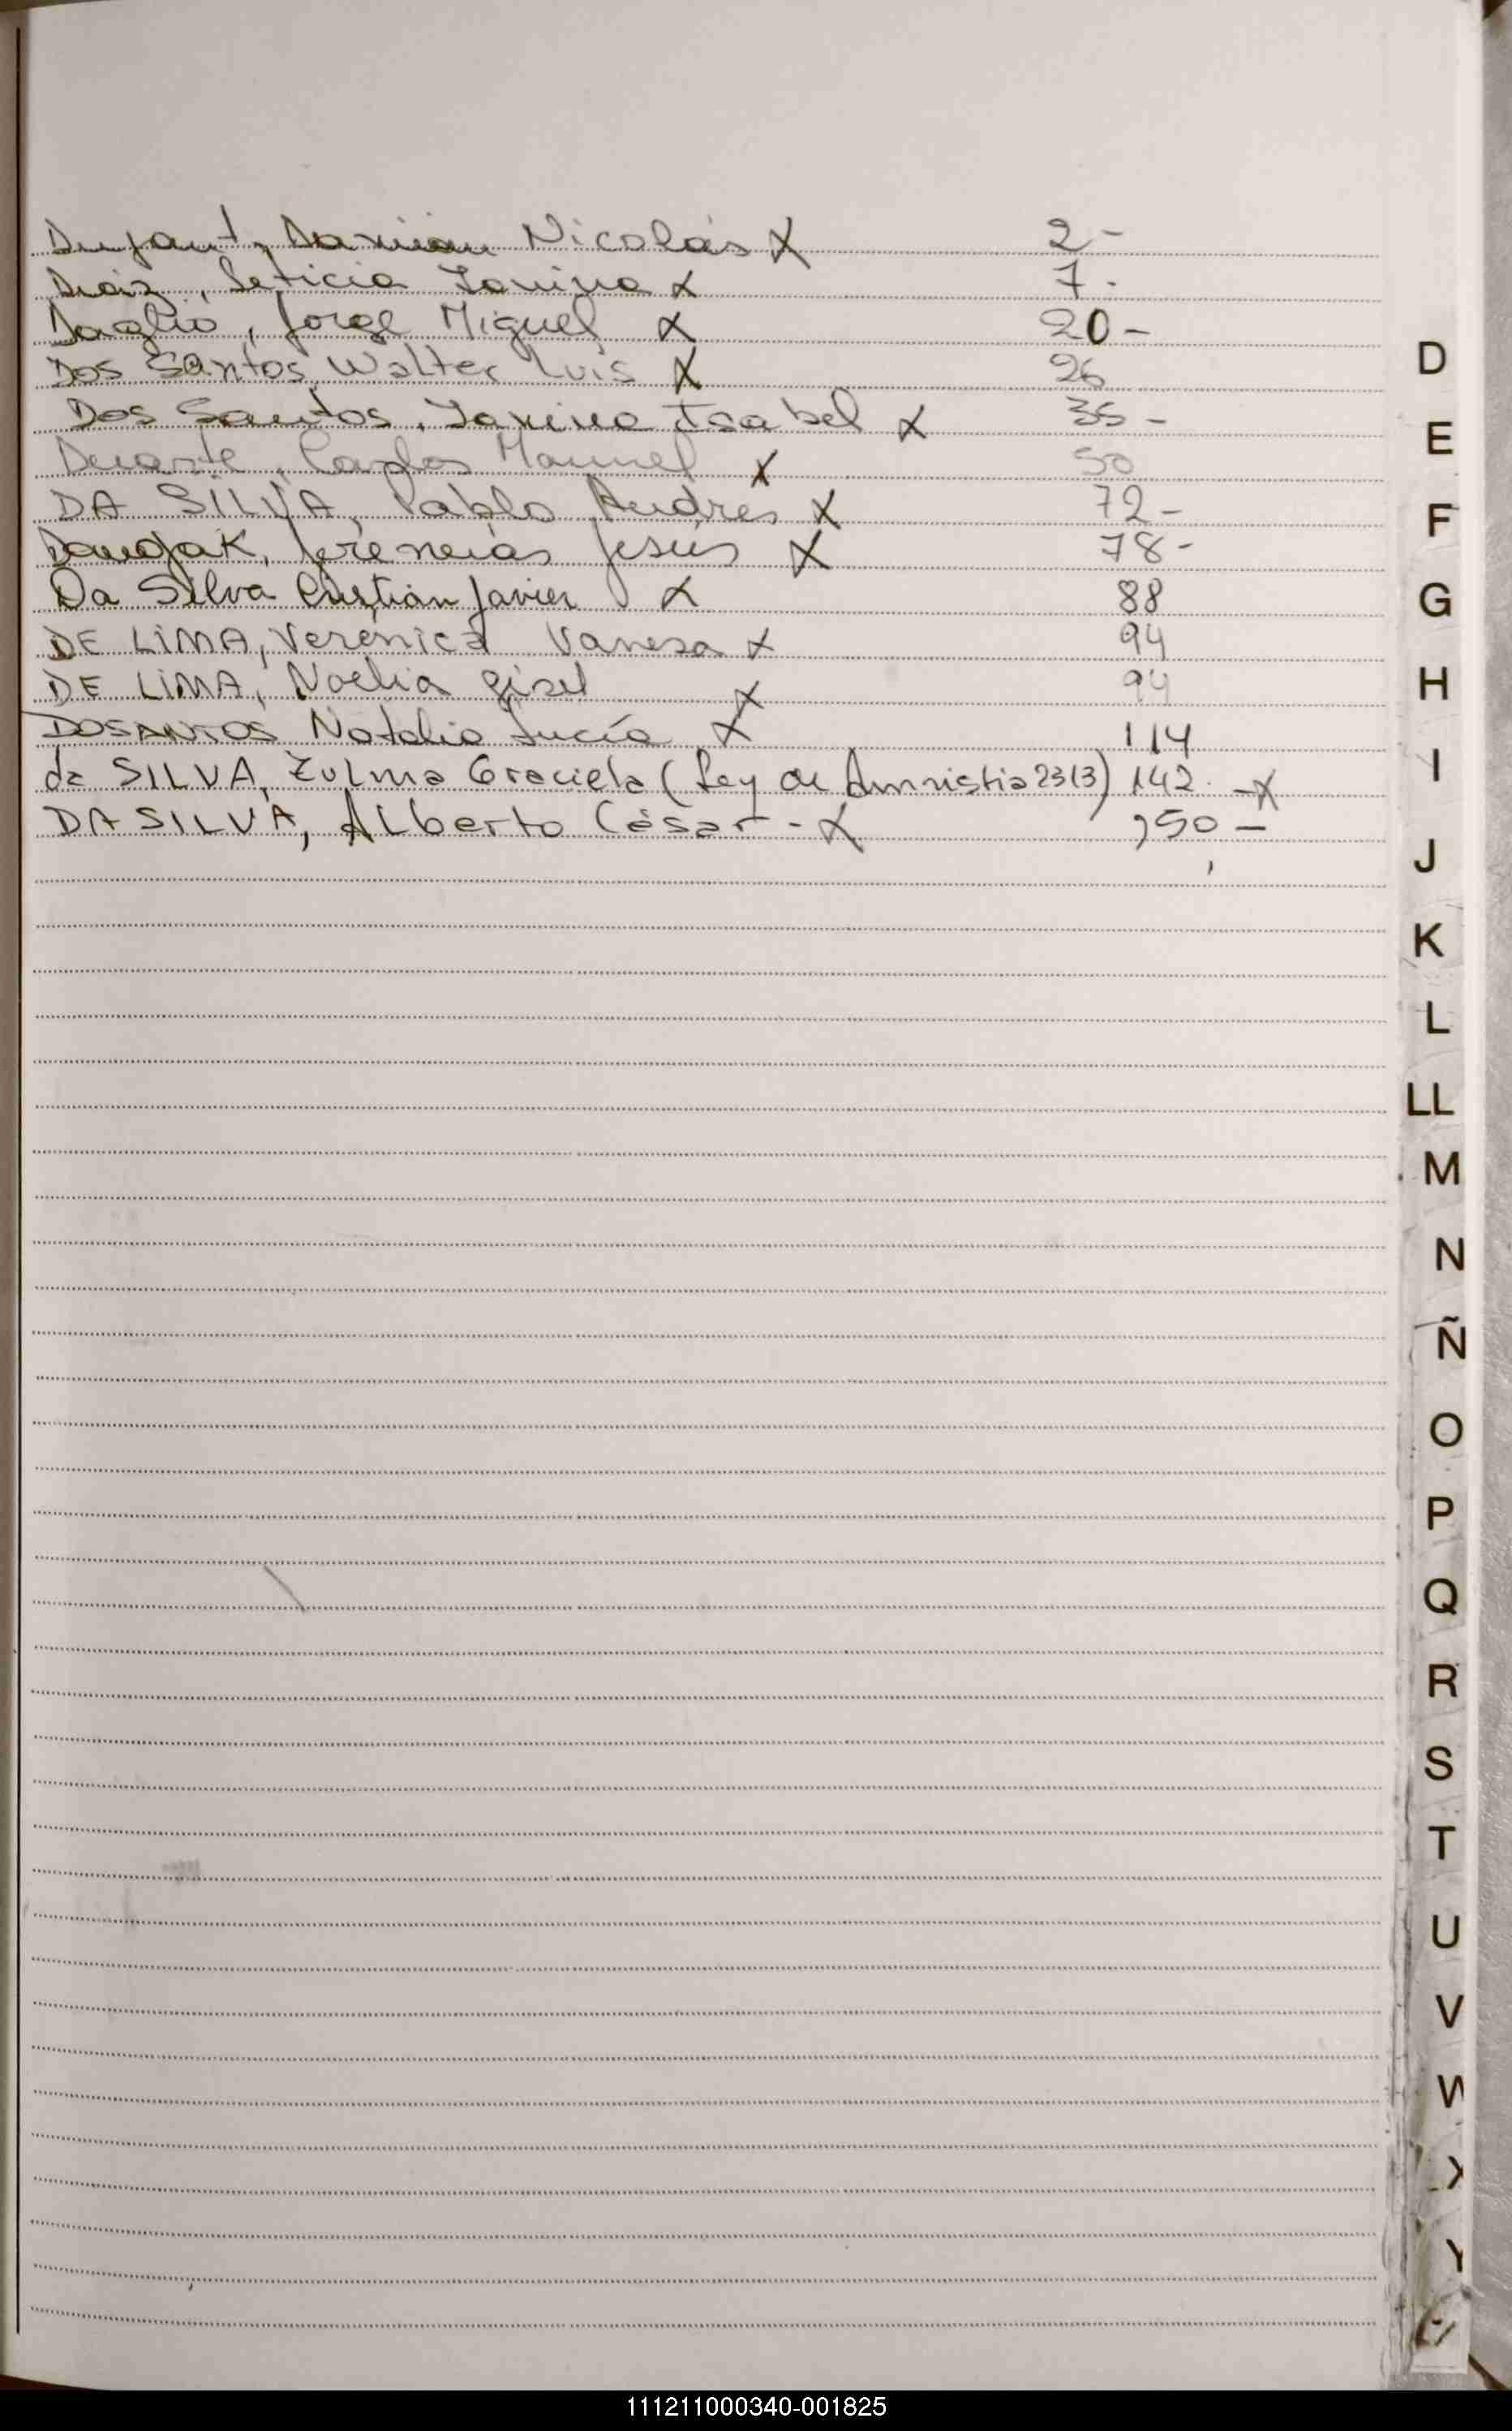 Dujaut, Damián Nicolás X 2-
Diaz, Leticia Yanina X 7-
Daglio, Jorge Miguel X 20-
Dos Santos, Walter Luis X 26
Dos Santos, Yanina Isabel X 35-
Duarte, Carlos Manuel X 50
DA SILVA, Pablo Andres X 72-
Jesús X 78-
Da Silva Cristian Javier X 88
DE LIMA, Verónica Vanesa X 94
DE LIMA, Noelia Gisel X 94
DOSANTOS Natalia Lucía X 114
da SILVA, Zulma Graciela (Ley de Amnistia 2313) 142. -X
DA SILVA, Alberto César - X 150-
D
E
F
G
H
I
J
K
L
LL
M
N
Ñ
O
P
Q
R
S
T
U
V
W
X
Y
111211000340-001825